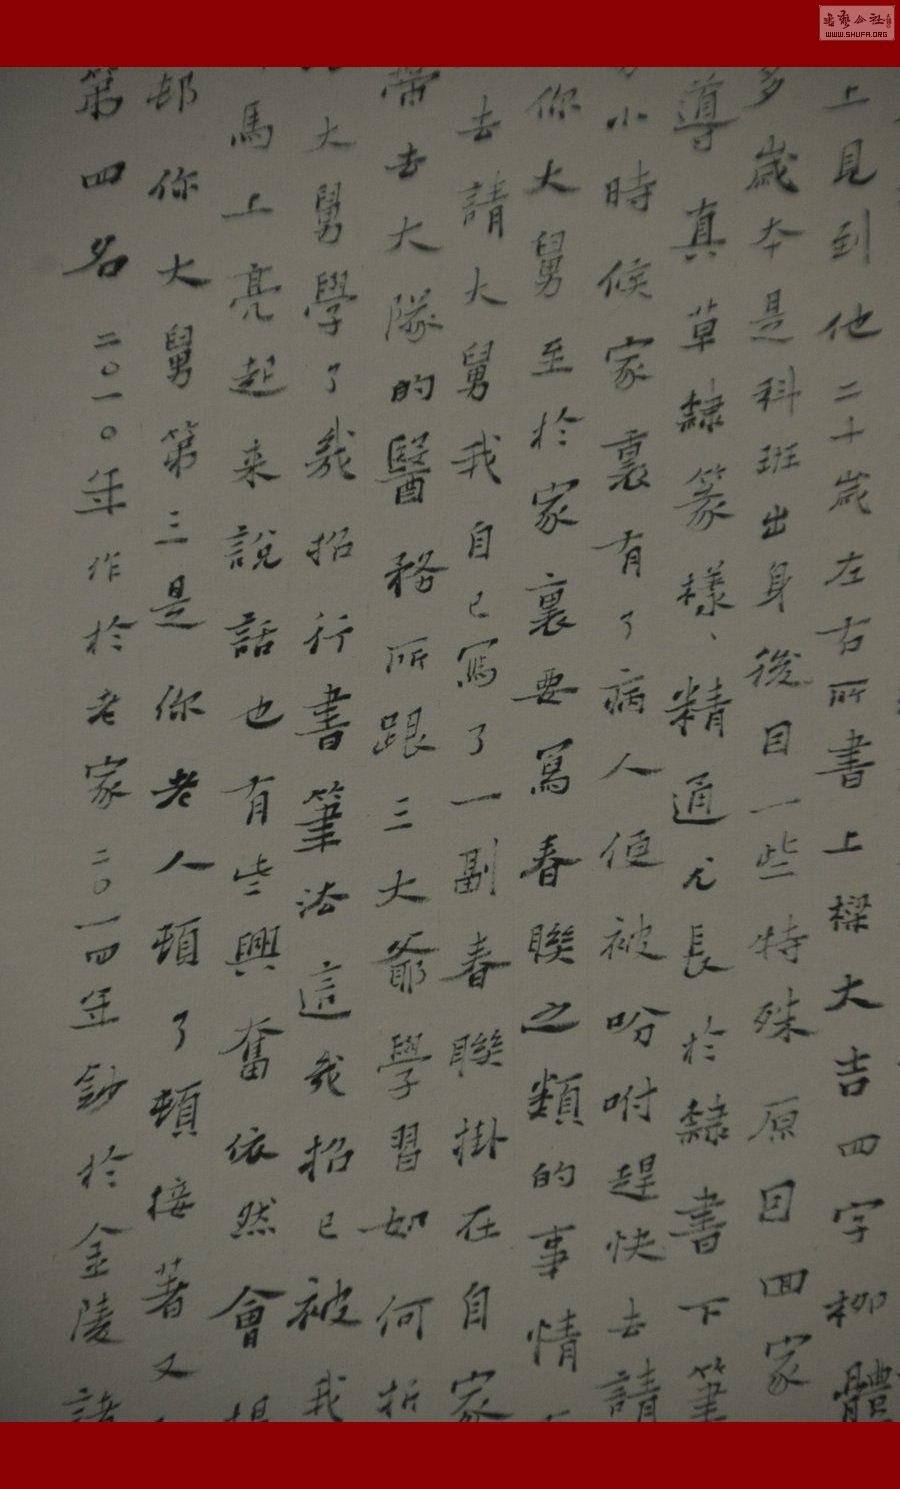 上見到他二十歲左右所書上樑大吉四字柳體
多歲本是科班出身後因一些特殊原因回家
導真草隸篆樣、精通尤長於隸書下筆
小時候家裏有了病人便被吩咐趕快去請
你大舅至於家裏要寫春聯之類的事情
去請大舅我自己寫了一副春聯掛在自家
帶去大隊的醫務所跟三大爺學習如何折
大舅學了幾招行書筆法這幾招已被我
馬上亮起来說話也有些興奮依然會
邨你大舅第三是你老人頓了頓接著又
第四名 二〇一〇年作於老家二〇一四年鈔於金陵
書藝公社
WWW.SHUFA.ORG